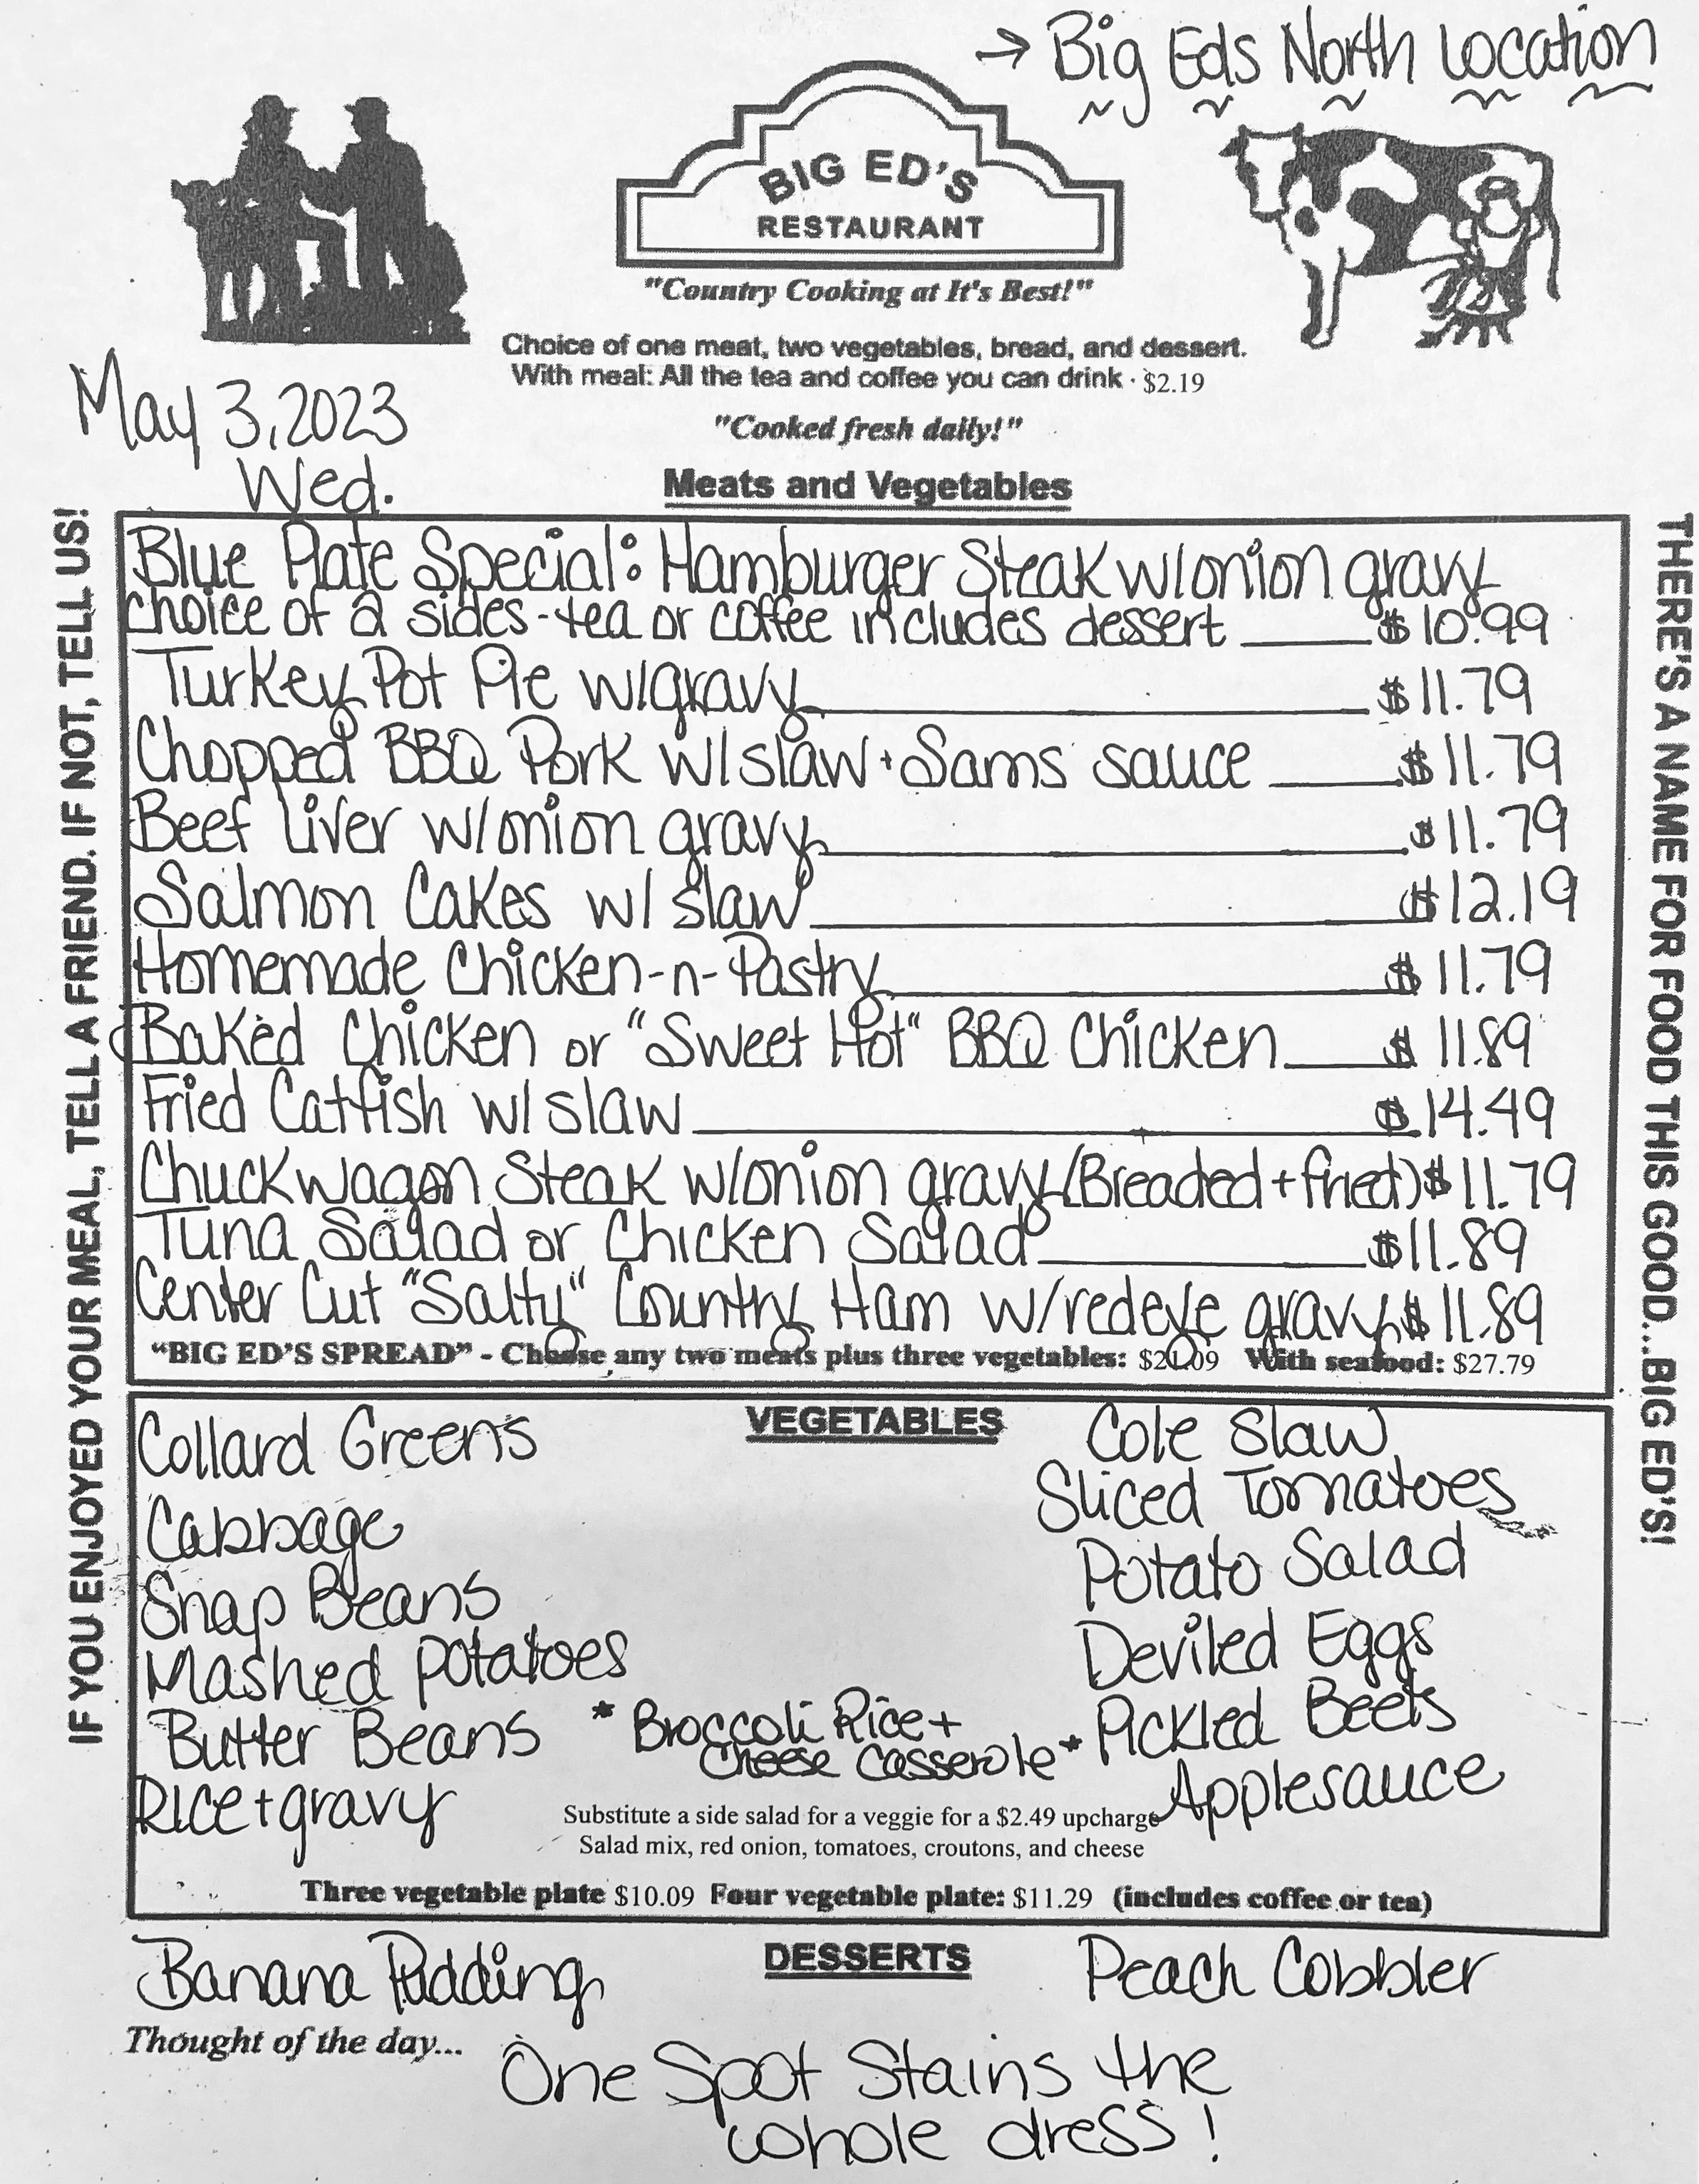 → Big Eds North Location
BIG ED'S
RESTAURANT
"Country Cooking at It's Best!"
Choice of one meat, two vegetables, bread, and dessert.
With meal: All the tea and coffee you can drink · $2.19
May 3, 2023
Wed.
"Cooked fresh daily!"
Meats and Vegetables
IF YOU ENJOYED YOUR MEAL, TELL A FRIEND. IF NOT, TELL US!
THERE'S A NAME FOR FOOD THIS GOOD...BIG ED'S!
Blue Plate Special: Hamburger Steak w/onion gravy
choice of 2 sides - tea or coffee includes dessert $10.99
Turkey Pot Pie w/gravy $11.79
Chopped BBQ Pork w/slaw + Sams sauce $11.79
Beef Liver w/onion gravy $11.79
Salmon Cakes w/ slaw $12.19
Homemade Chicken-n-Pastry $11.79
Baked Chicken or "Sweet Hot" BBQ Chicken $11.89
Fried Catfish w/slaw $14.49
Chuckwagon Steak w/onion gravy (Breaded + fried) $11.79
Tuna Salad or Chicken Salad $11.89
Center Cut "Salty" Country Ham w/redeye gravy $11.89
"BIG ED'S SPREAD" - Choose any two meats plus three vegetables: $21.09 With seafood: $27.79
VEGETABLES
Collard Greens
Cabbage
Snap Beans
Mashed Potatoes
Butter Beans
Rice + gravy
* Broccoli Rice +
Cheese Casserole *
Cole Slaw
Sliced Tomatoes
Potato Salad
Deviled Eggs
Pickled Beets
Applesauce
Substitute a side salad for a veggie for a $2.49 upcharge
Salad mix, red onion, tomatoes, croutons, and cheese
Three vegetable plate $10.09 Four vegetable plate: $11.29 (includes coffee or tea)
DESSERTS
Banana Pudding
Peach Cobbler
Thought of the day...
One Spot Stains the
whole dress!